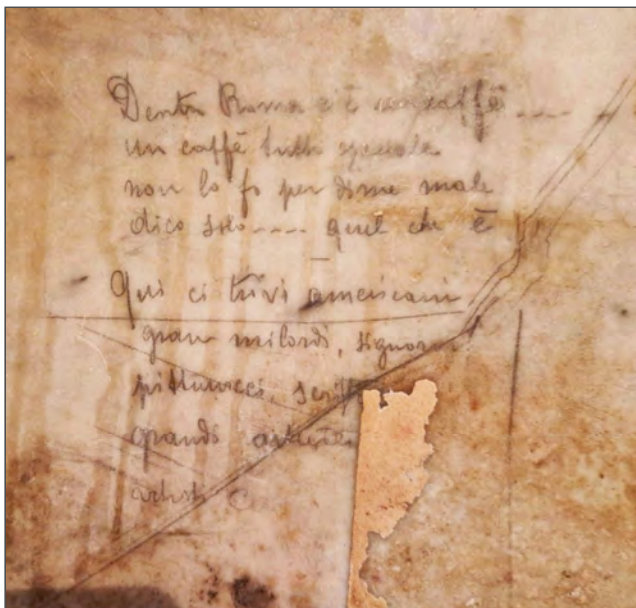 Dentro Roma c'è un caffè ....
un caffè tutto speciale
non lo fo per dirne male
dico solo .... quel che è
Qui ci trovi americani
gran milordi, signore
pittorucci,
grandi
artisti